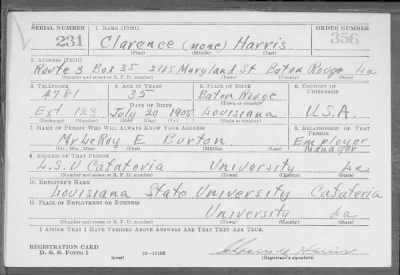 SERIAL NUMBER 1. NAME (Print) ORDER NUMBER
231 Clarence (none) Harris 356
2. ADDRESS (Print)
Route 3 Box 35 2105 Maryland St Baton Rouge La
3. TELEPHONE 4. AGE IN YEARS 5. PLACE OF BIRTH 6. COUNTRY OF CITIZENSHIP
4781 35 Baton Rouge
DATE OF BIRTH (Town or county)
Ext. 123 July 20 1905 Louisiana U.S.A.
(Exchange) (Number) (Mo.) (Day) (Yr.) (State or country)
7. NAME OF PERSON WHO WILL ALWAYS KNOW YOUR ADDRESS 8. RELATIONSHIP OF THAT PERSON
Mr LeRoy E Burton Employer Manager
(Mr., Mrs., Miss) (First) (Middle) (Last)
9. ADDRESS OF THAT PERSON
L.S.U Cafateria University La
(Number and street or R. F. D. number) (Town) (County) (State)
10. EMPLOYER'S NAME
Louisiana State University Cafateria
11. PLACE OF EMPLOYMENT OR BUSINESS
University La
(Number and street or R. F. D. number) (Town) (County) (State)
I AFFIRM THAT I HAVE VERIFIED ABOVE ANSWERS AND THAT THEY ARE TRUE.
REGISTRATION CARD
D. S. S. Form 1 (over) Clarence Harris
(Registrant's signature)